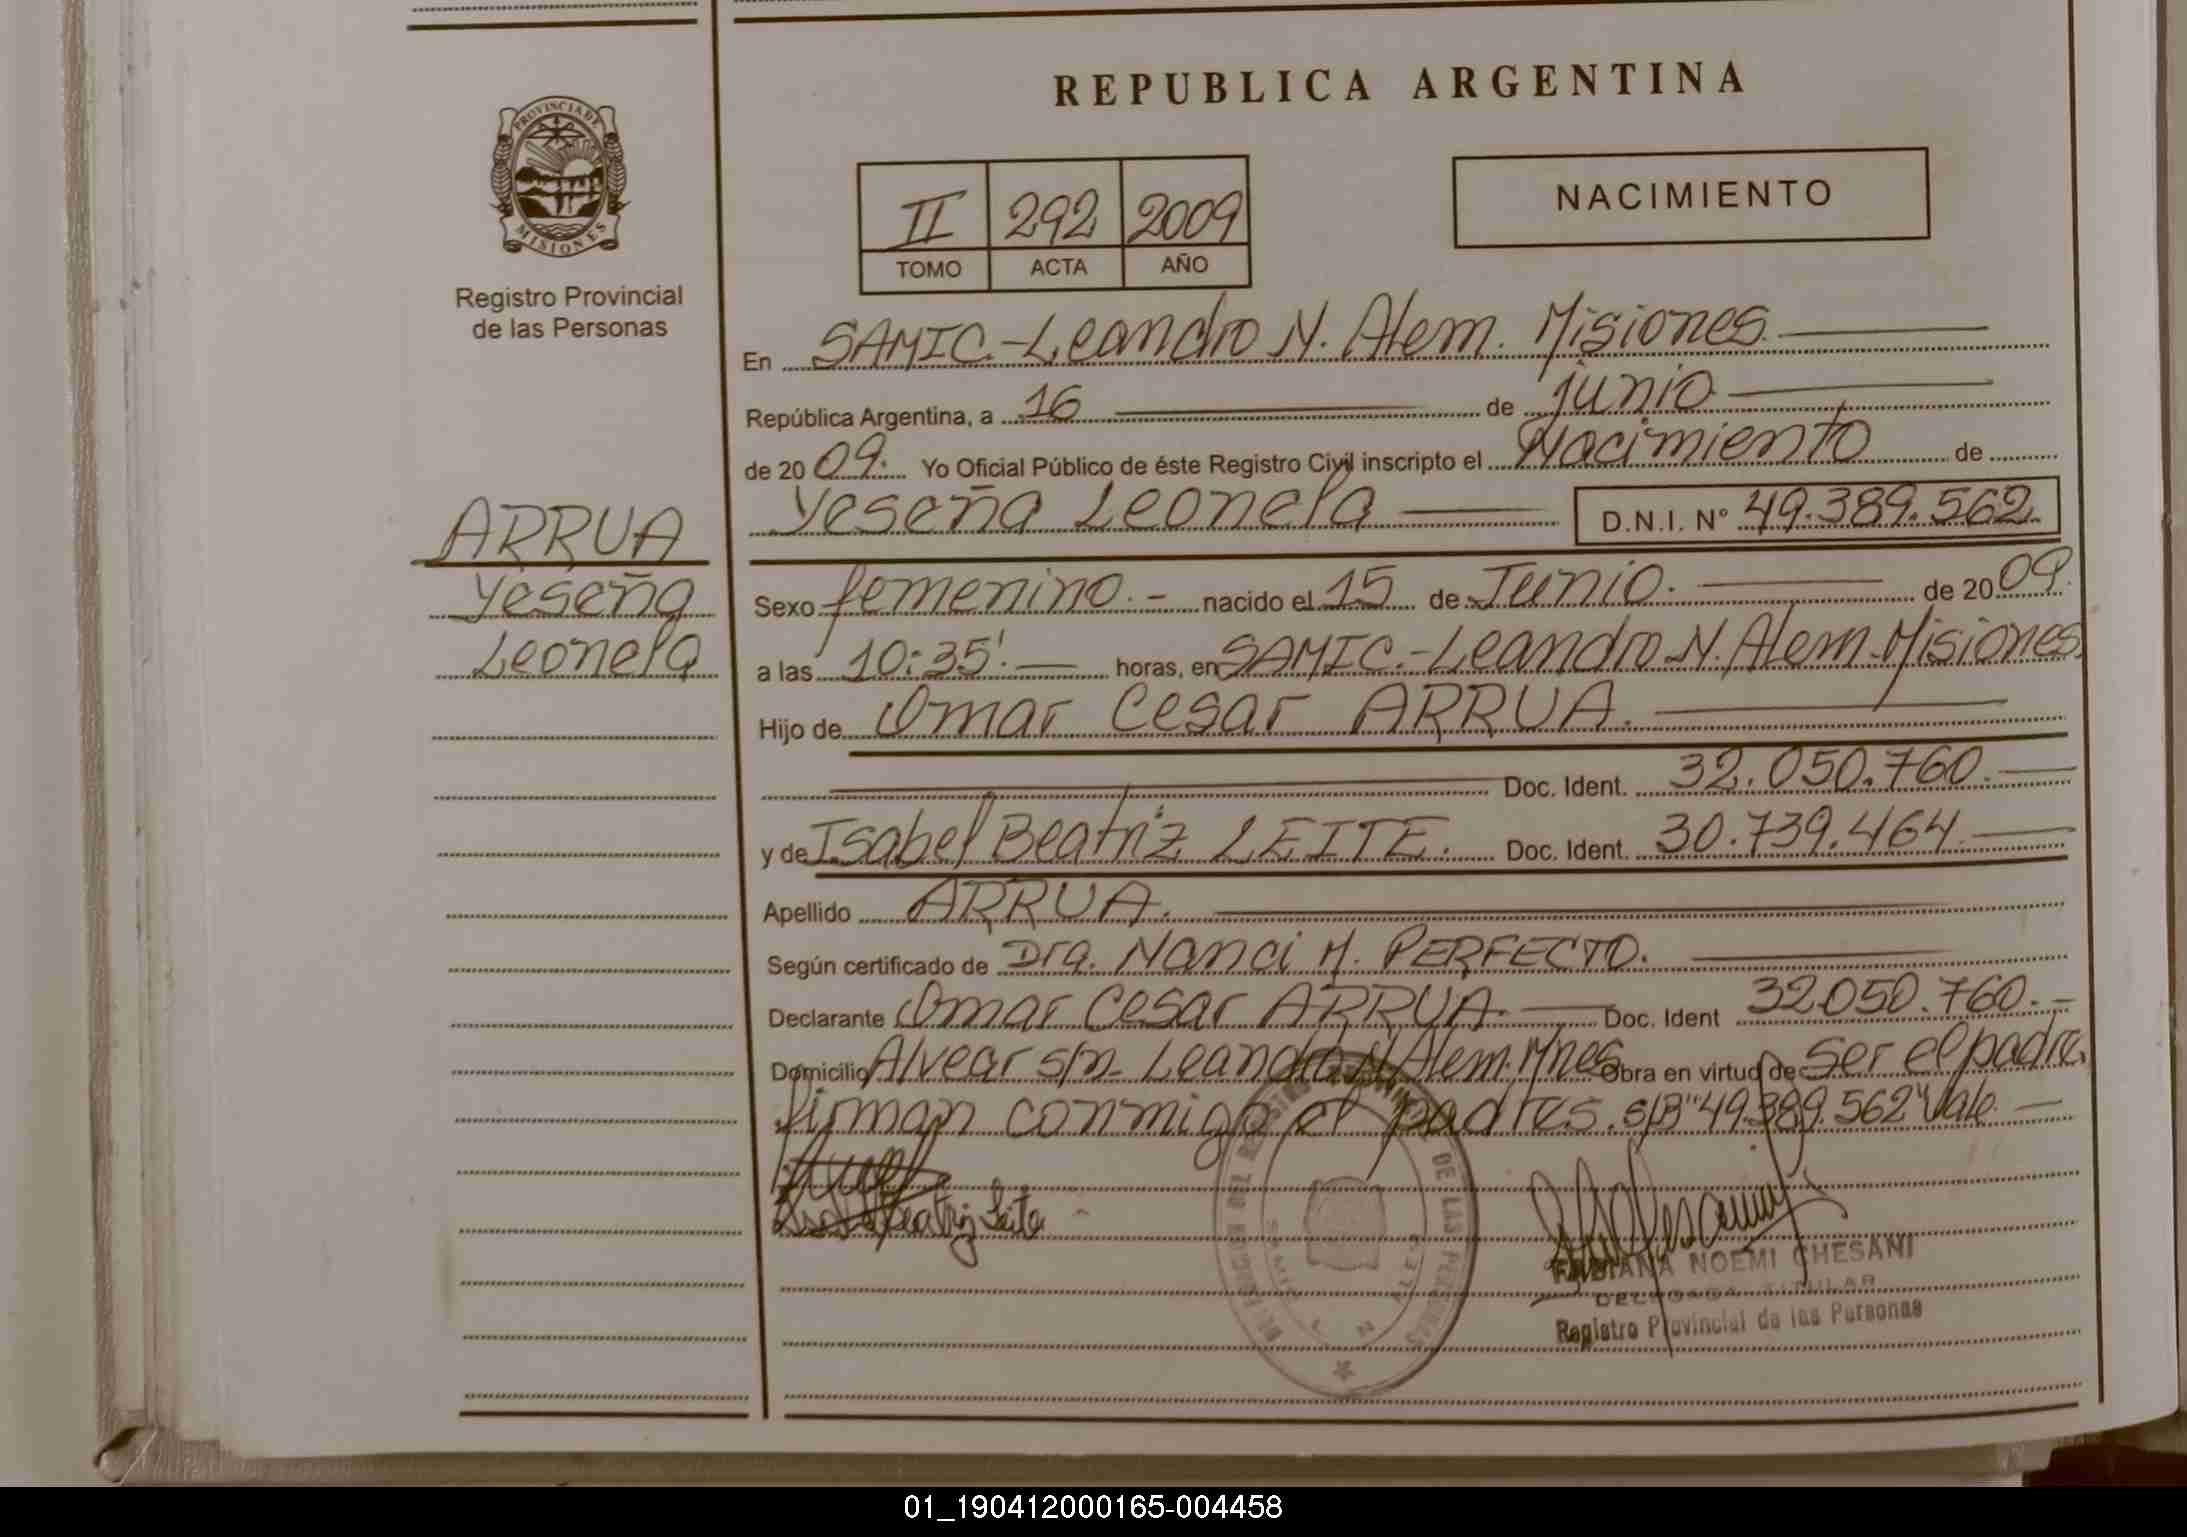 PROVINCIA DE
MISIONES
Registro Provincial
de las Personas
ARRUA
Yeseña
Leonela
REPUBLICA ARGENTINA
II 292 2009
TOMO ACTA AÑO
NACIMIENTO
En SAMIC.-Leandro N. Alem. Misiones.
República Argentina, a 16 de junio
de 2009. Yo Oficial Público de éste Registro Civil inscripto el Nacimiento de
Yeseña Leonela D.N.I. N° 49.389.562.
Sexo femenino.- nacido el 15 de Junio. de 2009.
a las 10:35'. horas, en SAMIC.-Leandro N. Alem.Misiones.
Hijo de Omar Cesar ARRUA.
Doc. Ident. 32.050.760.
y de Isabel Beatriz LEITE. Doc. Ident. 30.739.464.
Apellido ARRUA.
Según certificado de Dra. Nanci M. PERFECTO.
Declarante Omar Cesar ARRUA. Doc. Ident 32050.760.-
Domicilio Alvear s/n- Leandro N. Alem. Mnes Obra en virtud de Ser el padre.
firman conmigo el padres. S/B "49.389.562" Vale.
Isabel Beatriz Leite
DE LAS PERSONAS
FABIANA NOEMI CHESANI
DELEGADA TITULAR
Registro Provincial de las Personas
01_190412000165-004458